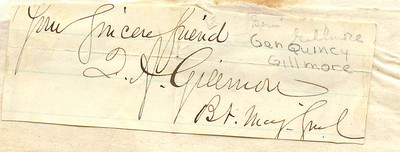 Your Sincere friend
Q. A. Gillmore
Bt. Maj. Genl
Gen Quincy
Gillmore